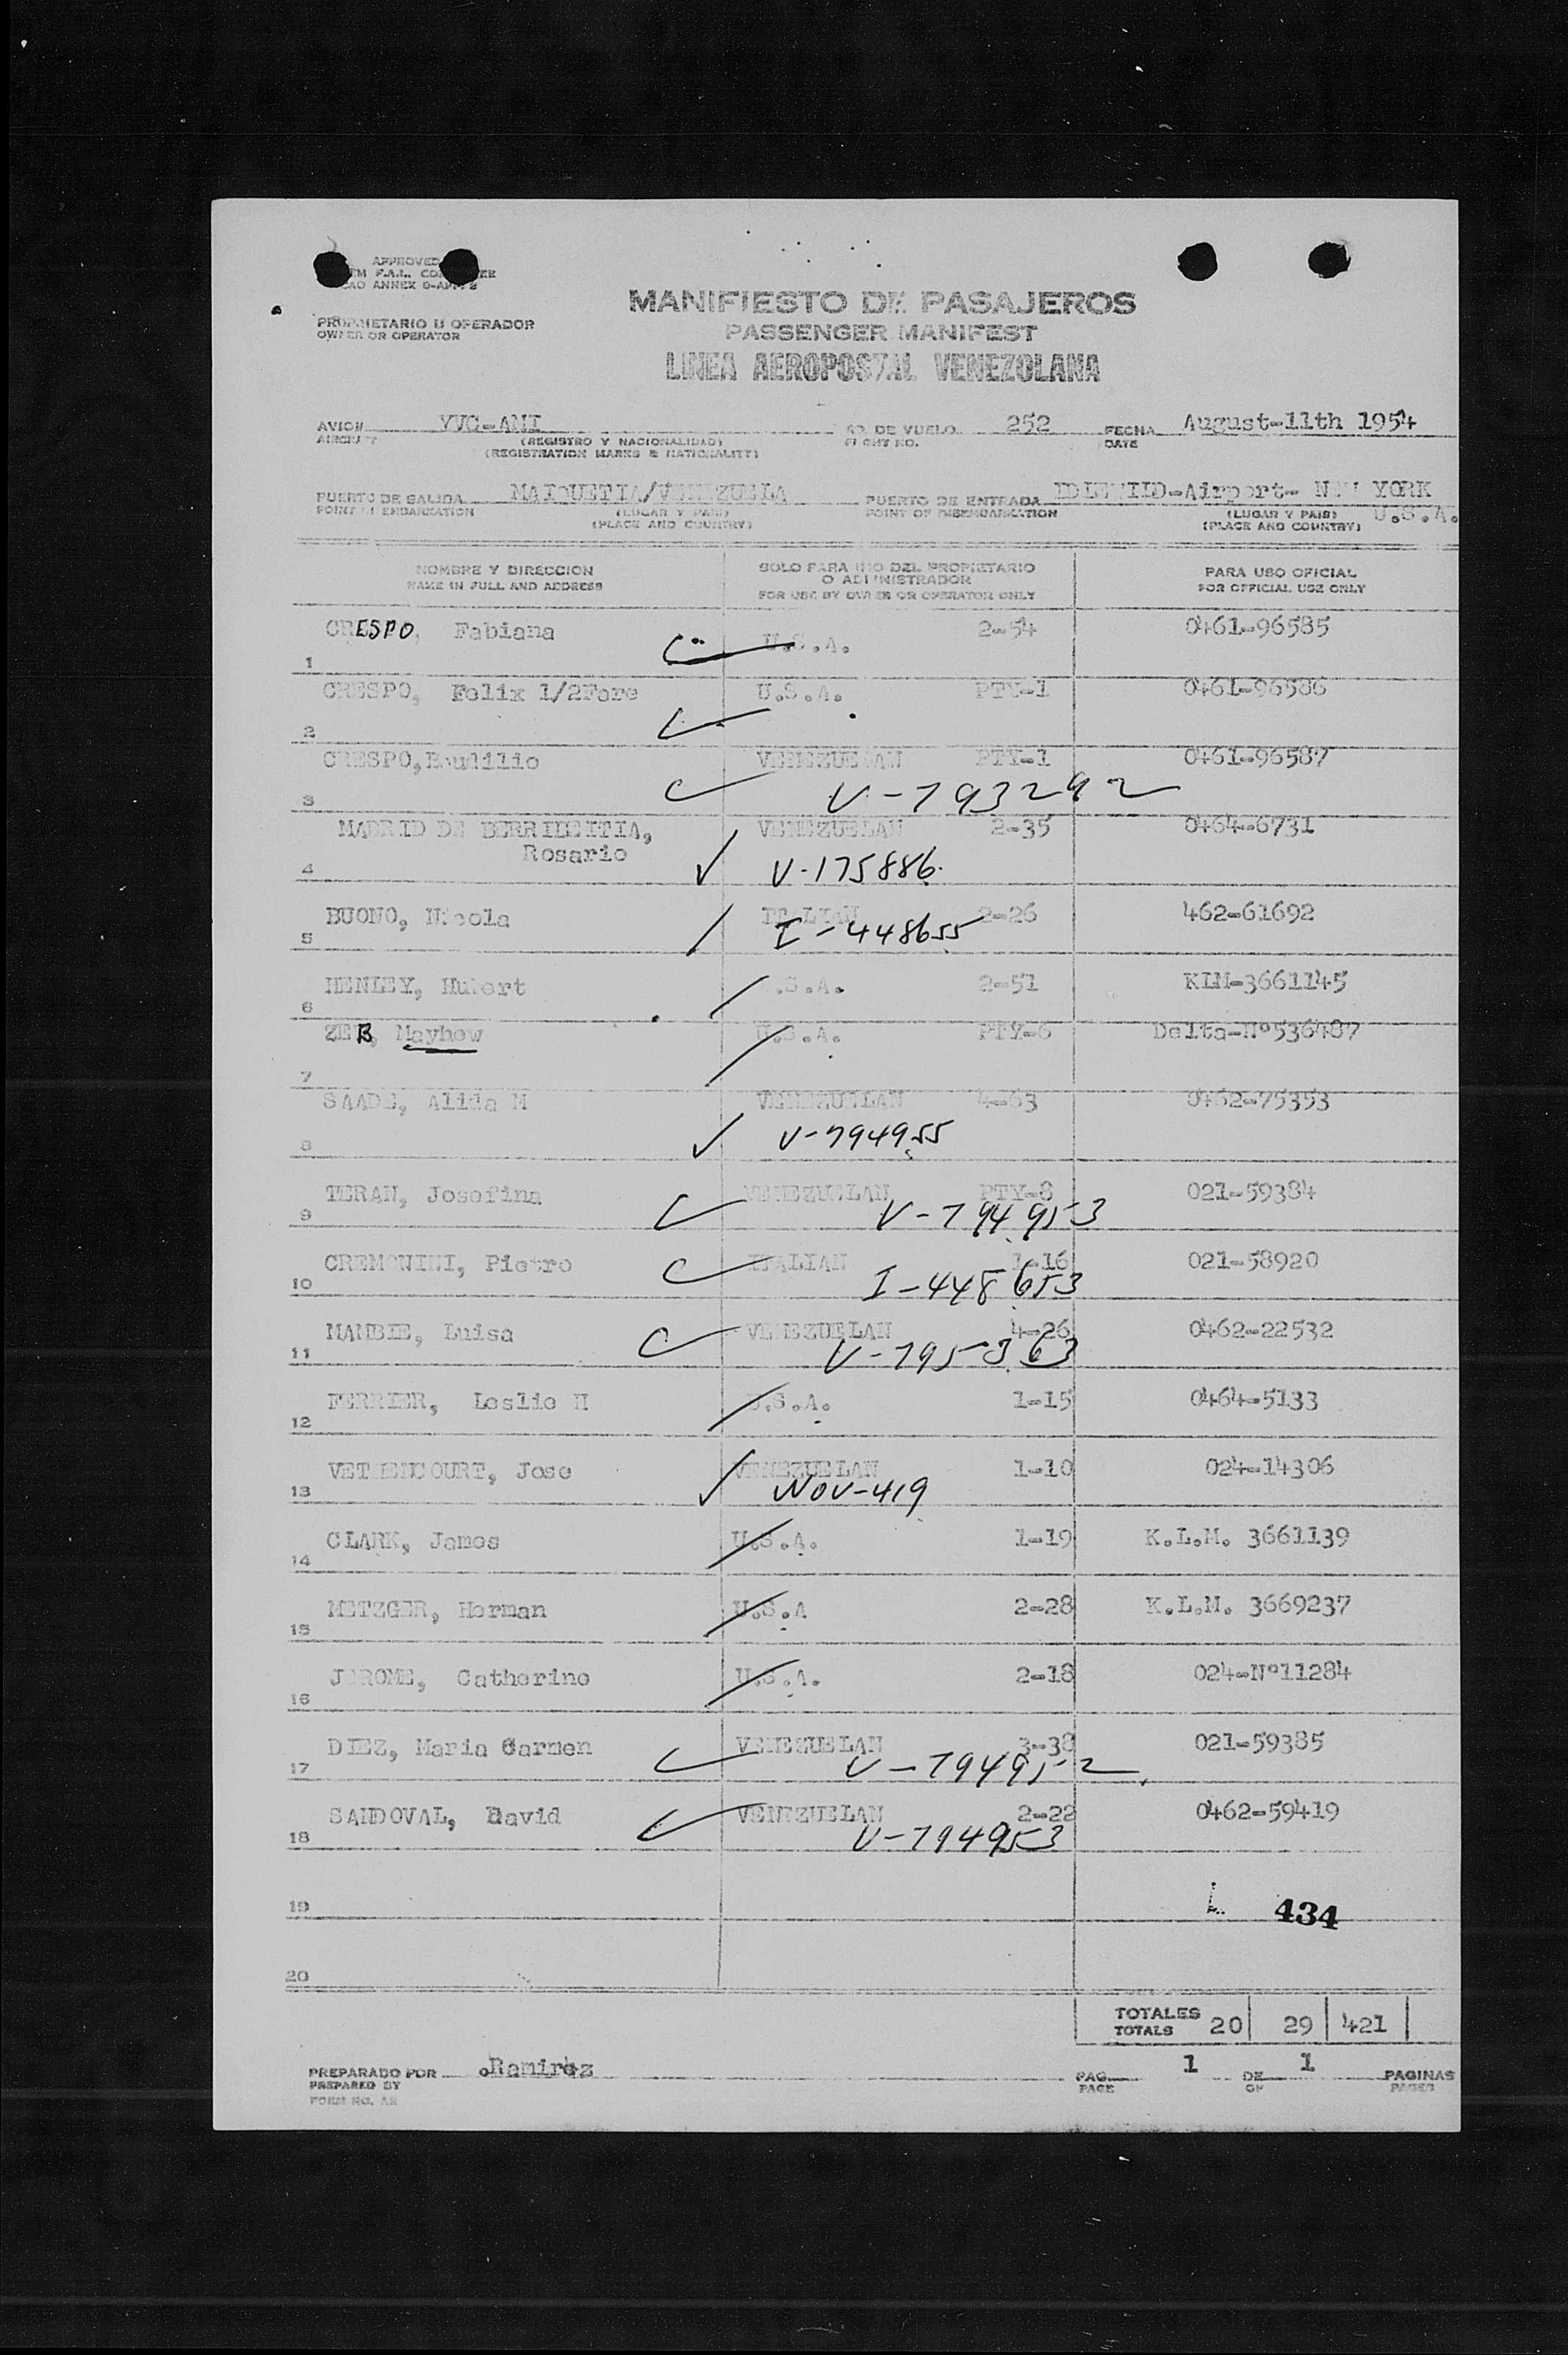 APPROVED
ANNEX 9-APP. 2
PROPRIETARIO U OPERADOR
OWNER OR OPERATOR
MANIFIESTO DE PASAJEROS
PASSENGER MANIFEST
LINEA AEROPOSTAL VENEZOLANA
AVION YVC-AMI NO. DE VUELO 252 FECHA August-11th 1954
AIRCRAFT (REGISTRO Y NACIONALIDAD) FLIGHT NO. DATE
(REGISTRATION MARKS & NATIONALITY)
PUERTO DE SALIDA MAIQUETIA/VENEZUELA PUERTO DE ENTRADA IDLEWILD-Airport- NEW YORK
POINT OF EMBARKATION (LUGAR Y PAIS) POINT OF DISEMBARKATION (LUGAR Y PAIS) U.S.A.
(PLACE AND COUNTRY) (PLACE AND COUNTRY)
NOMBRE Y DIRECCION SOLO PARA USO DEL PROPIETARIO PARA USO OFICIAL
NAME IN FULL AND ADDRESS O ADMINISTRADOR FOR OFFICIAL USE ONLY
FOR USE BY OWNER OR OPERATOR ONLY
CRESPO, Fabiana U.S.A. 2-54 0461-96585
1
CRESPO, Felix 1/2Fare U.S.A. PTY-1 0461-96586
2
CRESPO, VENEZUELAN PTY-1 0461-96587
3 V-793292
MADRID DE BERRIBEITIA, VENEZUELAN 2-35 0464-6731
Rosario
4 V-175886.
BUONO, Nicola ITALIAN 2-26 462-61692
5 I-448655
HENLEY, Hubert U.S.A. 2-51 KLM-3661145
6
ZEB, Mayhew U.S.A. PTY-6 Delta-Nº536487
7
SAADE, Alida M VENEZUELAN 4-63 0462-75353
8 V-794955
TERAN, Josefina VENEZUELAN PTY-8 021-59384
9 V-794953
CREMONINI, Pietro ITALIAN 1-16 021-58920
10 I-448653
MAMBIE, Luisa VENEZUELAN 4-26 0462-22532
11 V-795363
FERRIER, Leslie H U.S.A. 1-15 0464-5133
12
VETHENCOURT, Jose VENEZUELAN 1-10 024-14306
13 NOV-419
CLARK, James U.S.A. 1-19 K.L.M. 3661139
14
METZGER, Herman U.S.A 2-28 K.L.M. 3669237
15
JEROME, Catherine U.S.A. 2-18 024-Nº11284
16
DIEZ, Maria Carmen VENEZUELAN 3-38 021-59385
17 V-794952
SANDOVAL, David VENEZUELAN 2-22 0462-59419
18 V-794953
19 434
20
TOTALES
TOTALS 20 29 421
PREPARADO POR Ramirez PAG. 1 DE 1 PAGINAS
PREPARED BY PAGE OF PAGES
FORM NO.